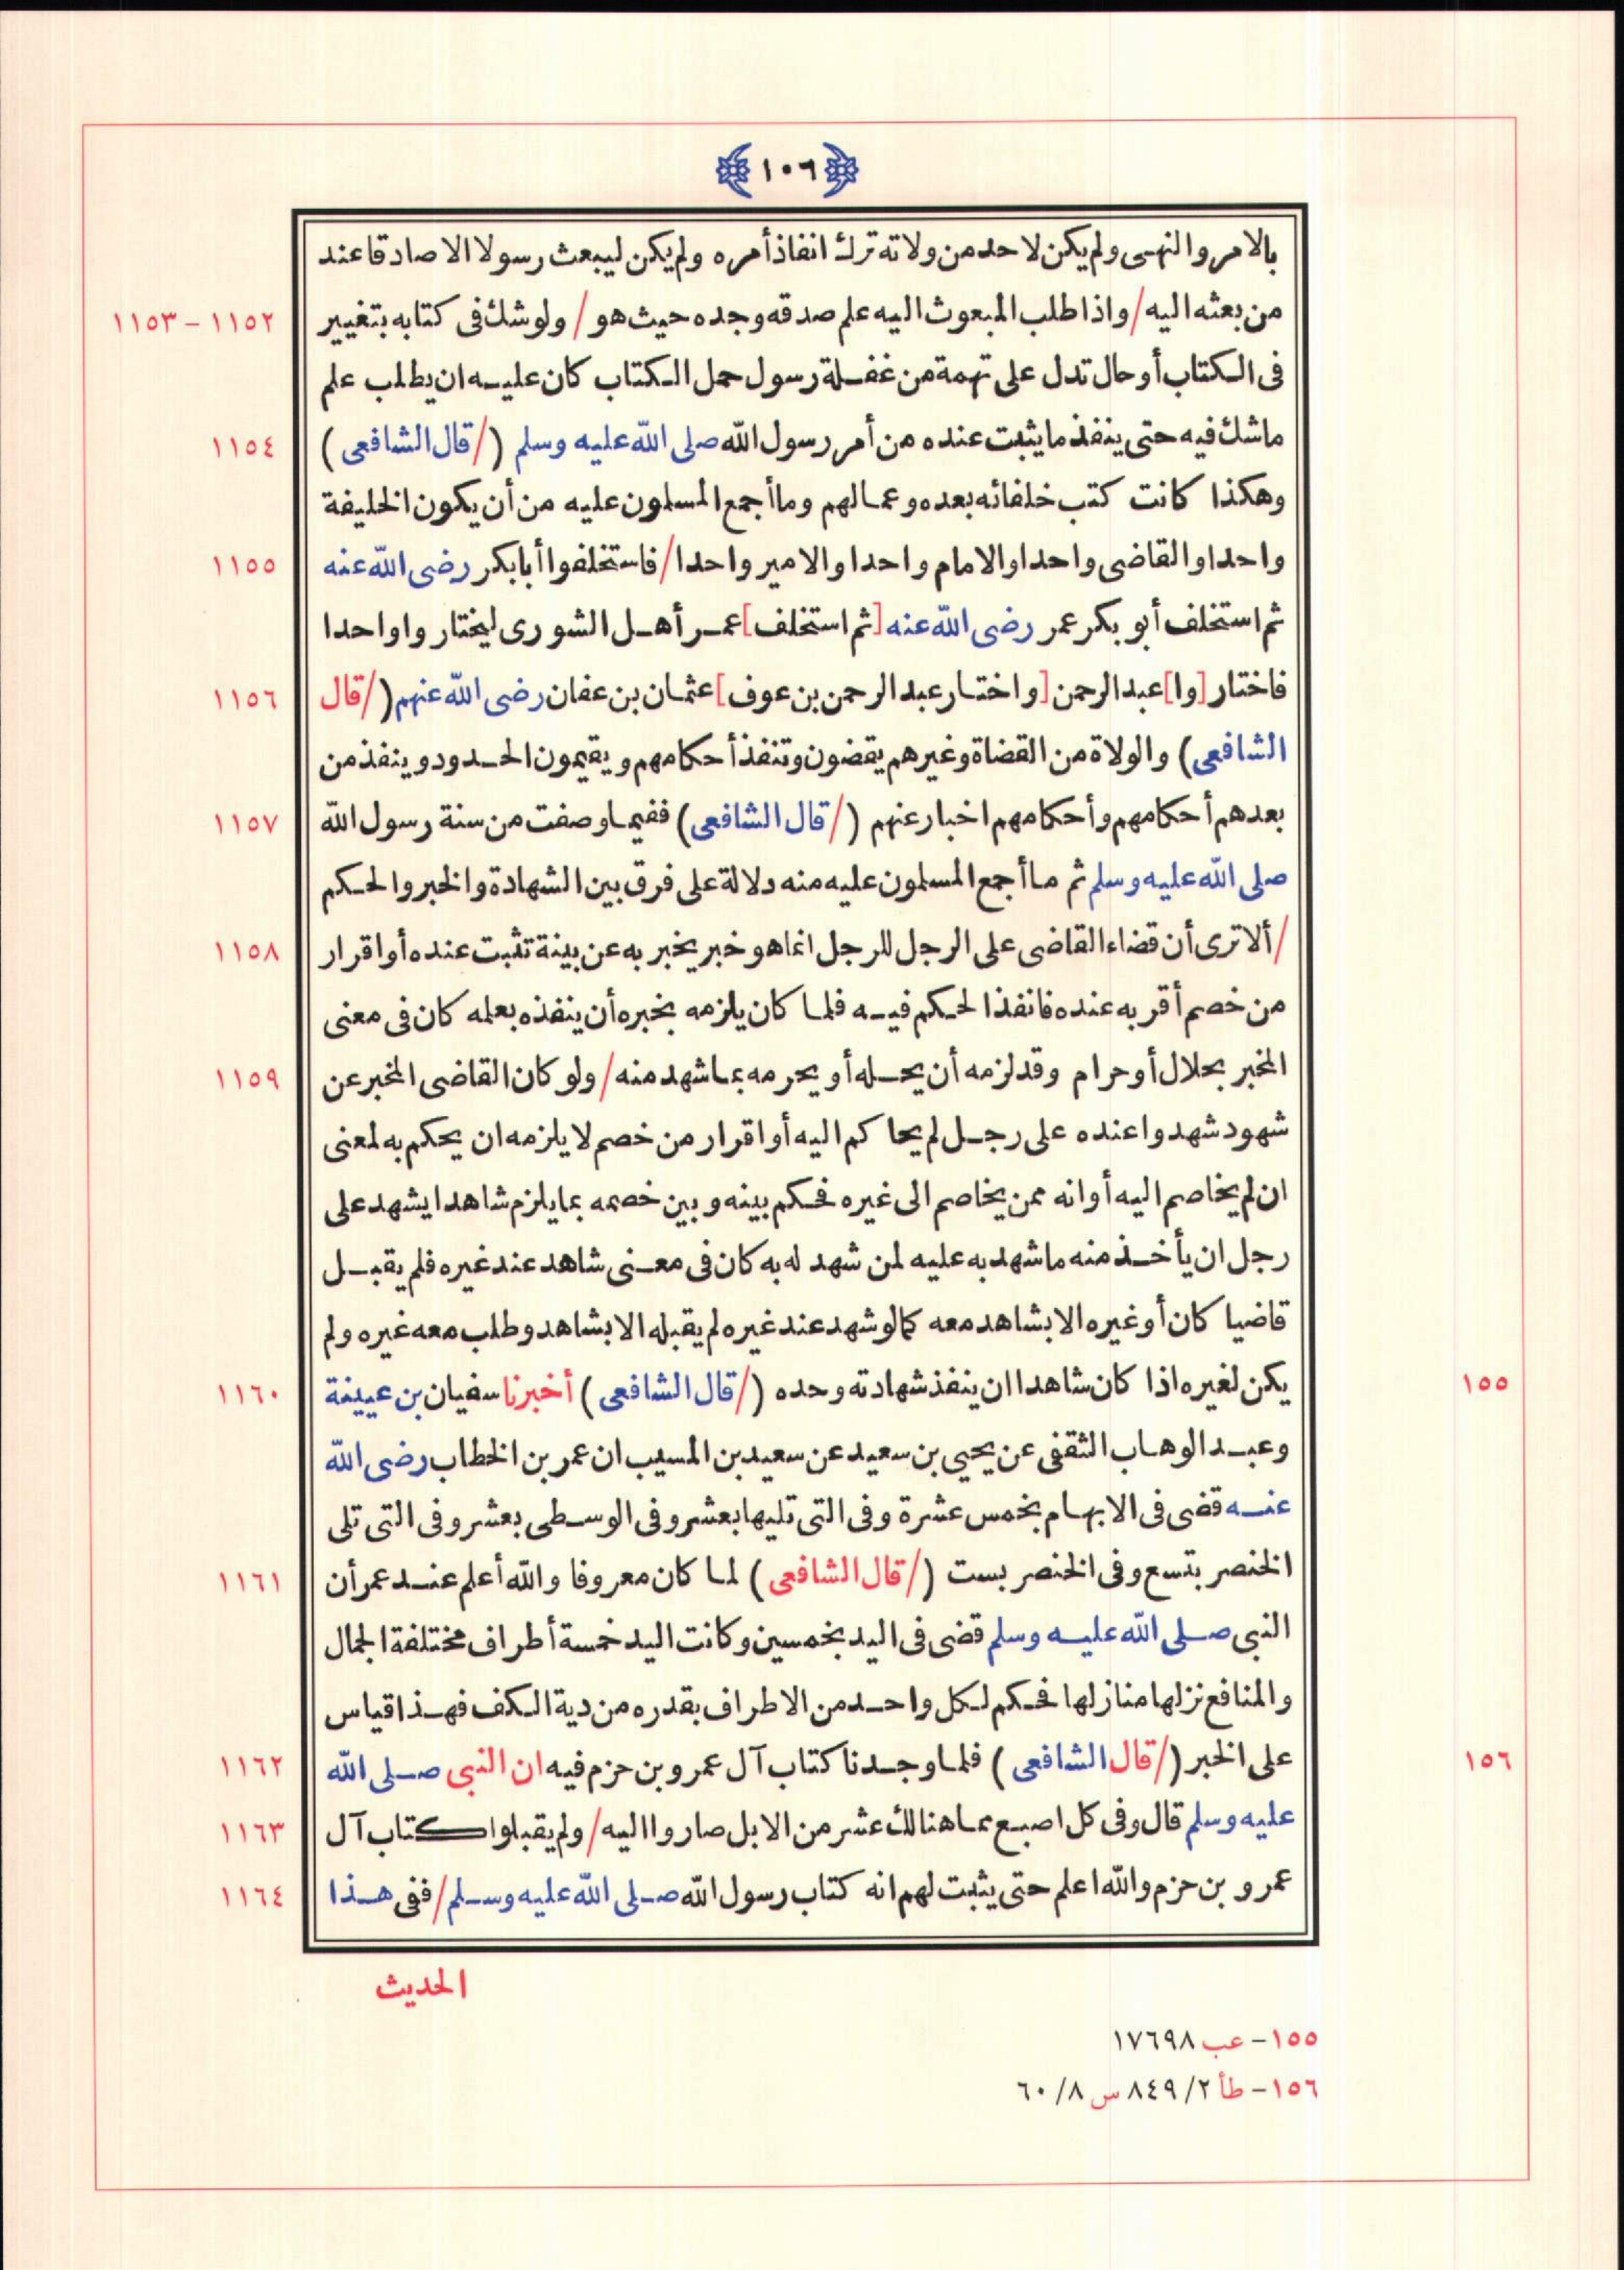 ١٠٦
بالامر والنهى ولم يكن لاحد من ولاته ترك انفاذ أمره ولم يكن ليبعث رسولا الا صادقا عند
من بعثه اليه / واذا طلب المبعوث اليه علم صدقه وجده حيث هو / ولو شك فى كتابه بتغيير ١١٥٢ – ١١٥٣
فى الكتاب أو حال تدل على تهمة من غفلة رسول حمل الكتاب كان عليه ان يطلب علم
ما شك فيه حتى ينفذ ما يثبت عنده من أمر رسول الله صلى الله عليه وسلم (/ قال الشافعى) ١١٥٤
وهكذا كانت كتب خلفائه بعده وعمالهم وما أجمع المسلمون عليه من أن يكون الخليفة
واحدا والقاضى واحدا والامام واحدا والامير واحدا / فاستخلفوا أبا بكر رضى الله عنه ١١٥٥
ثم استخلف أبو بكر عمر رضى الله عنه [ثم استخلف] عمر أهل الشورى ليختاروا واحدا
فاختار [وا] عبد الرحمن [واختار عبد الرحمن بن عوف] عثمان بن عفان رضى الله عنهم (/ قال ١١٥٦
الشافعى) والولاة من القضاة وغيرهم يقضون وتنفذ أحكامهم ويقيمون الحدود وينفذ من
بعدهم أحكامهم وأحكامهم اخبار عنهم (/ قال الشافعى) ففيما وصفت من سنة رسول الله ١١٥٧
صلى الله عليه وسلم ثم ما أجمع المسلمون عليه منه دلالة على فرق بين الشهادة والخبر والحكم
/ ألا ترى أن قضاء القاضى على الرجل للرجل انما هو خبر يخبر به عن بينة تثبت عنده أو اقرار ١١٥٨
من خصم أقر به عنده فانفذ الحكم فيه فلما كان يلزمه بخبره أن ينفذه بعلمه كان فى معنى
المخبر بحلال أو حرام وقد لزمه أن يحله أو يحرمه بما شهد منه / ولو كان القاضى المخبر عن ١١٥٩
شهود شهدوا عنده على رجل لم يحاكم اليه أو اقرار من خصم لا يلزمه ان يحكم به لمعنى
ان لم يخاصم اليه أو انه ممن يخاصم الى غيره فحكم بينه وبين خصمه بما يلزم شاهدا يشهد على
رجل ان يأخذ منه ما شهد به عليه لمن شهد له به كان فى معنى شاهد عند غيره فلم يقبل
قاضيا كان أو غيره الا بشاهد معه كما لو شهد عند غيره لم يقبله الا بشاهد وطلب معه غيره ولم
١٥٥ يكن لغيره اذا كان شاهدا ان ينفذ شهادته وحده (/ قال الشافعى) أخبرنا سفيان بن عيينة ١١٦٠
وعبد الوهاب الثقفى عن يحيى بن سعيد عن سعيد بن المسيب ان عمر بن الخطاب رضى الله
عنه قضى فى الابهام بخمس عشرة وفى التى تليها بعشر وفى الوسطى بعشر وفى التى تلى
الخنصر بتسع وفى الخنصر بست (/ قال الشافعى) لما كان معروفا والله أعلم عند عمر أن ١١٦١
النبى صلى الله عليه وسلم قضى فى اليد بخمسين وكانت اليد خمسة أطراف مختلفة الجمال
والمنافع نزلها منازلها فحكم لكل واحد من الاطراف بقدره من دية الكف فهذا قياس
١٥٦ على الخبر (/ قال الشافعى) فلما وجدنا كتاب آل عمرو بن حزم فيه ان النبى صلى الله ١١٦٢
عليه وسلم قال وفى كل اصبع مما هنالك عشر من الابل صاروا اليه / ولم يقبلوا كتاب آل ١١٦٣
عمرو بن حزم والله اعلم حتى يثبت لهم انه كتاب رسول الله صلى الله عليه وسلم / ففى هذا ١١٦٤
الحديث
١٥٥ – عب ١٧٦٩٨
١٥٦ – طأ ٢/ ٨٤٩ س ٨/ ٦٠